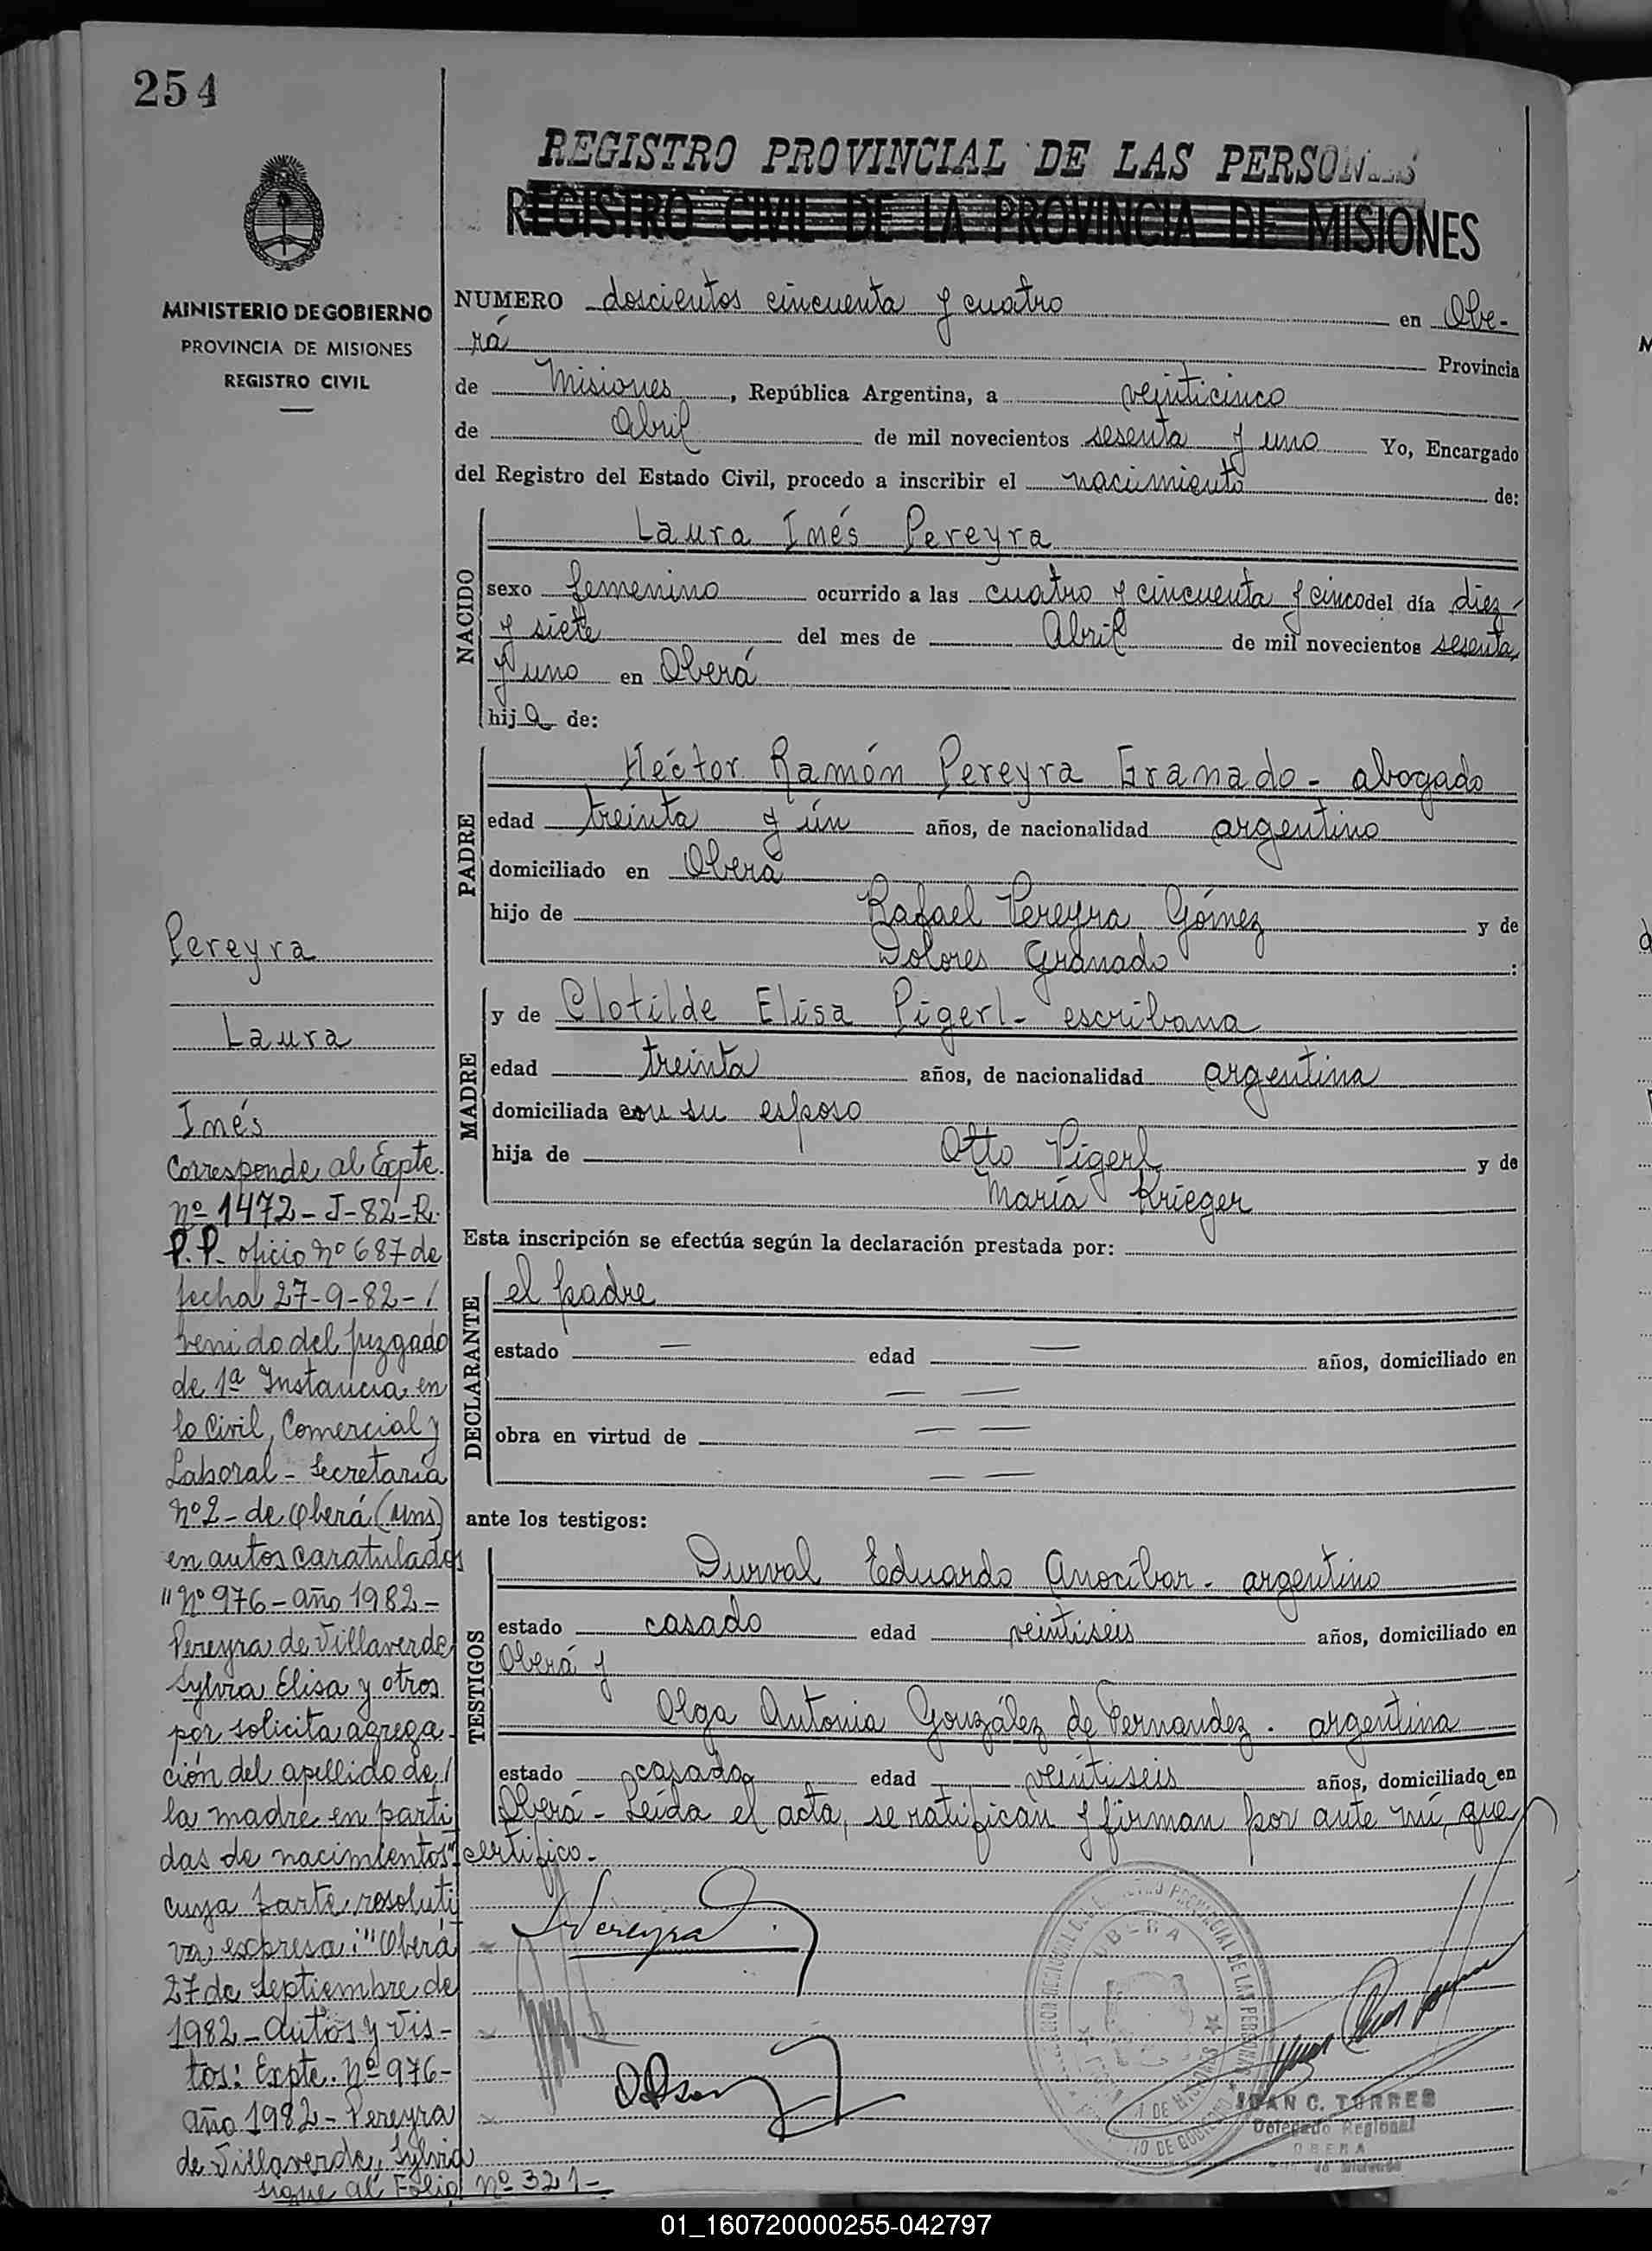 254
REGISTRO PROVINCIAL DE LAS PERSONAS
REGISTRO CIVIL DE LA PROVINCIA DE MISIONES
MINISTERIO DE GOBIERNO
PROVINCIA DE MISIONES
REGISTRO CIVIL
NUMERO doscientos cincuenta y cuatro en Obe-
rá Provincia
de Misiones, República Argentina, a veinticinco
de Abril de mil novecientos sesenta y uno Yo, Encargado
del Registro del Estado Civil, procedo a inscribir el nacimiento de:
NACIDO
Laura Inés Pereyra
sexo femenino ocurrido a las cuatro y cincuenta y cinco del día diez
y siete del mes de Abril de mil novecientos sesenta
y uno en Oberá
hija de:
PADRE
Héctor Ramón Pereyra Granado - abogado
edad treinta y ún años, de nacionalidad argentino
domiciliado en Oberá
hijo de Rafael Pereyra Gómez y de
Dolores Granado :
MADRE
y de Clotilde Elisa Pigerl - escribana
edad treinta años, de nacionalidad argentina
domiciliada con su esposo
hija de Otto Pigerl y de
María Krieger
Esta inscripción se efectúa según la declaración prestada por:
DECLARANTE
el padre
estado — edad — años, domiciliado en
— —
obra en virtud de — —
— —
ante los testigos:
TESTIGOS
Durval Eduardo Anocíbar - argentino
estado casado edad veintiseis años, domiciliado en
Oberá y
Olga Antonia González de Fernandez - argentina
estado casada edad veintiseis años, domiciliada en
Oberá - Leída el acta, se ratifican y firman por ante mí, que
certifico.-
Pereyra
Laura
Inés
Corresponde al Expte.
nº 1472-J-82-R.
P.P. oficio nº 687 de
fecha 27-9-82-/
venido del juzgado
de 1ª Instancia en
lo Civil, Comercial y
Laboral - Secretaría
nº 2 - de Oberá (Mns)
en autos caratulados
"Nº 976 - año 1982 -
Pereyra de Villaverde
Sylvia Elisa y otros
por solicita agrega-
ción del apellido de/
la madre en parti
das de nacimientos"
cuya parte resoluti
va expresa: "Oberá
27 de septiembre de
1982 - Autos y Vis-
tos: Expte. Nº 976-
año 1982 - Pereyra
de Villaverde, Sylvia
sigue al Folio nº 321-
Pereyra
OBERA
JUAN C. TORRES
Delegado Regional
OBERA
01_160720000255-042797